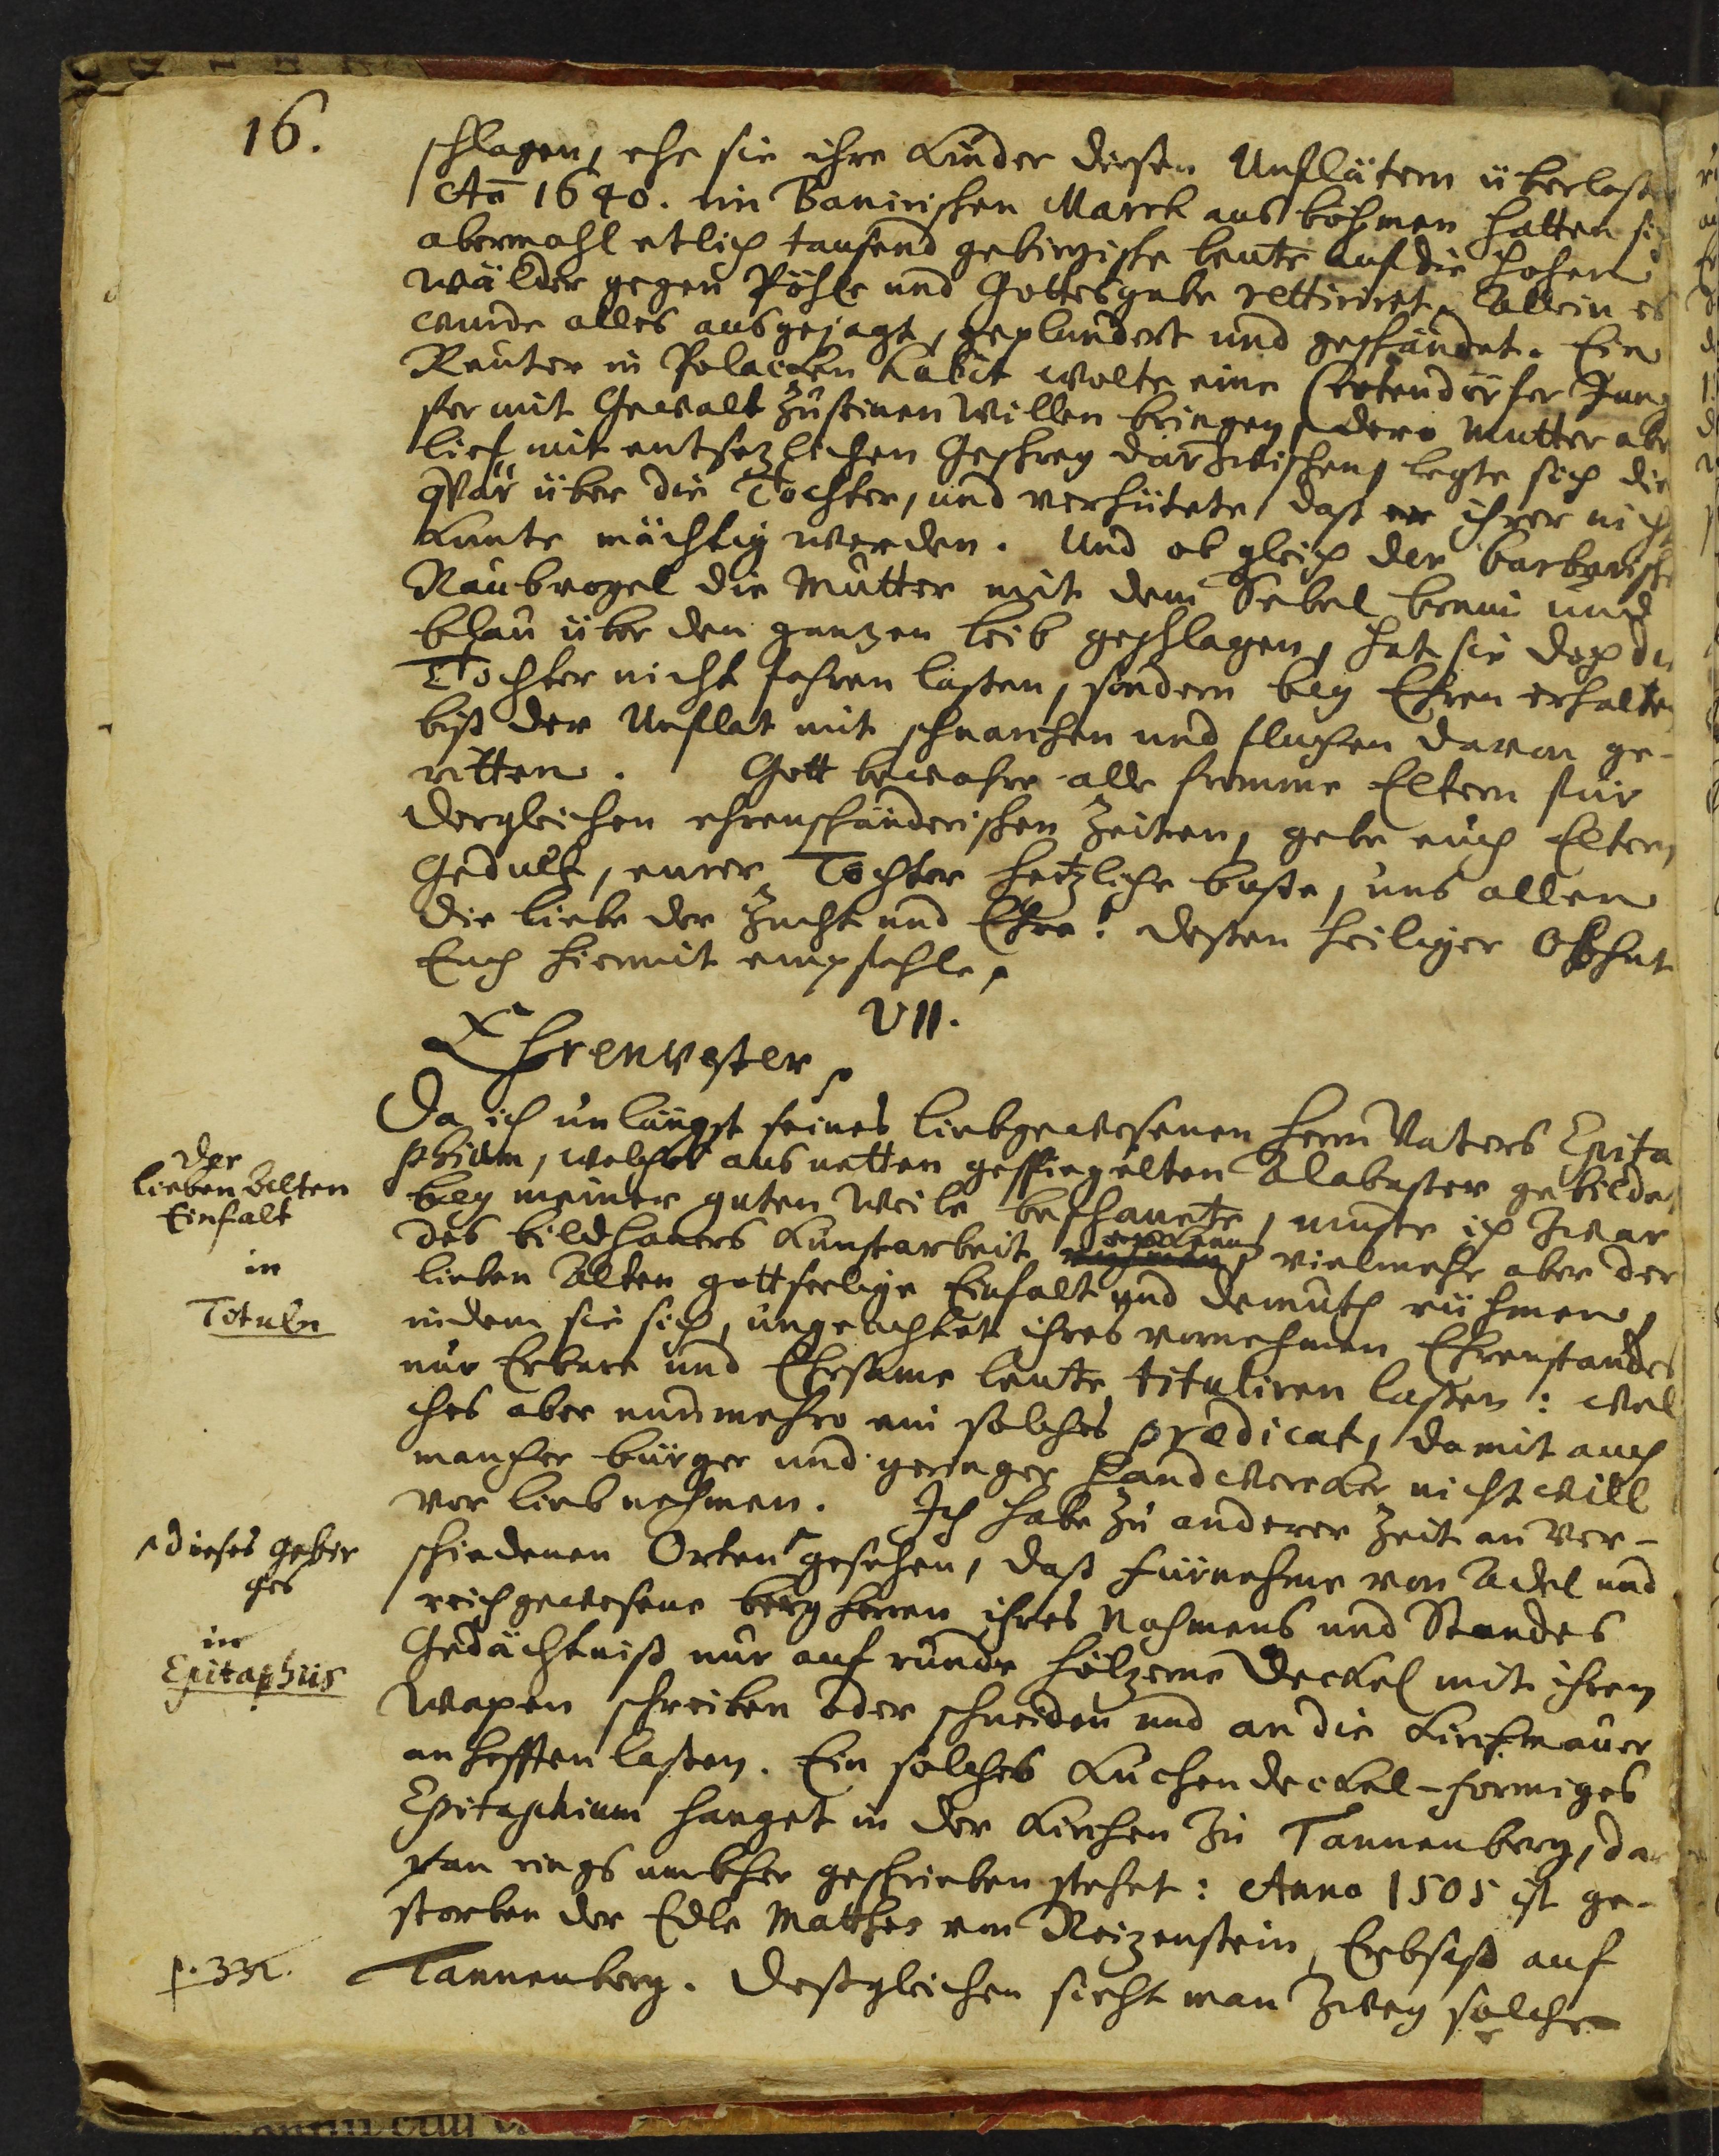 16.
schlagen, ehe sie ihre Kinder diesen Unflätern überlaßen
Aō 1640. im Banirischen Marck aus Böhmen hatten sich
abermahl etlich tausend gebirgische Leute auf die hohen
Wälder gegen Pöhle und Gottesgabe rettiriret, Allein es
wurde alles ausgejagt, geplundert und geschändet. Ein
Reuter in Polacken Habit wolte eine Crotendorfer Jung
fer mit Gewalt zu seinen Willen bringen, dero Mutter aber
lief mit entsezlichen Geschrey darzwischen, legte sich die
qvär über die Tochter, und verhütete, daß er ihrer nicht
kunte mächtig werden. Und ob gleich der barbarische
Raubvogel die Mutter mit dem Sebel braun und
blau über den gantzen Leib geschlagen, hat sie doch die
Tochter nicht fahren laßen, sondern bey Ehren erhalten
biß der Unflat mit schnarchen und fluchen davon ge-
ritten. Gott bewahre alle fromme Eltern für
dergleichen ehrenschänderischen Zeiten, gebe euch Eltern
Gedult, eurer Tochter hertzliche buße, uns allen
die Liebe der Zucht und Ehre! deßen heiliger Obhut
Euch hiermit empfehle,
VII.
Ehrenvester,
Da ich unlängst seines liebgewesenen Herrn Vaters Epita
phium, welches aus netten gespiegelten Alabaster gebildet
bey meiner guten Weile beschauete, muste ich zwar
des bildhauers Kunstarbeit, vielmehr aber der
lieben Alten gottseelige Einfalt und demuth rühmen,
indem sie sich, ungeachtet ihres vornehmen Ehrenstandes
nur Erbare und Ehrsame Leute tituliren laßen: wel
ches aber nunmehro ein solches prædicat, damit auch
mancher bürger und geringer Handwercker nicht will
vor lieb nehmen. Ich habe zu anderer Zeit an ver-
schiedenen Orten gesehen, daß fürnehme von Adel und
reich gewesene berg Herren ihres Nahmens und Standes
Gedächtniß nur auf runde höltzerne Deckel mit ihren
Wapen schreiben oder schneiden und an die Kirchmauer
an hefften laßen. Ein solches Kuchendeckel-formiges
Epitaphium hanget in der Kirchen zu Tannenberg, dar
ran rings umbher geschrieben stehet: Anno 1505 ist ge-
storben der Edle Matthes von Reizenstein, Erbsaß auf
Tannenberg. Deßgleichen sieht man zwey solche
der
lieben Alten
Einfalt
in
Tituln
dieses Gebir
ges
in
Epitaphiis
p. 331.